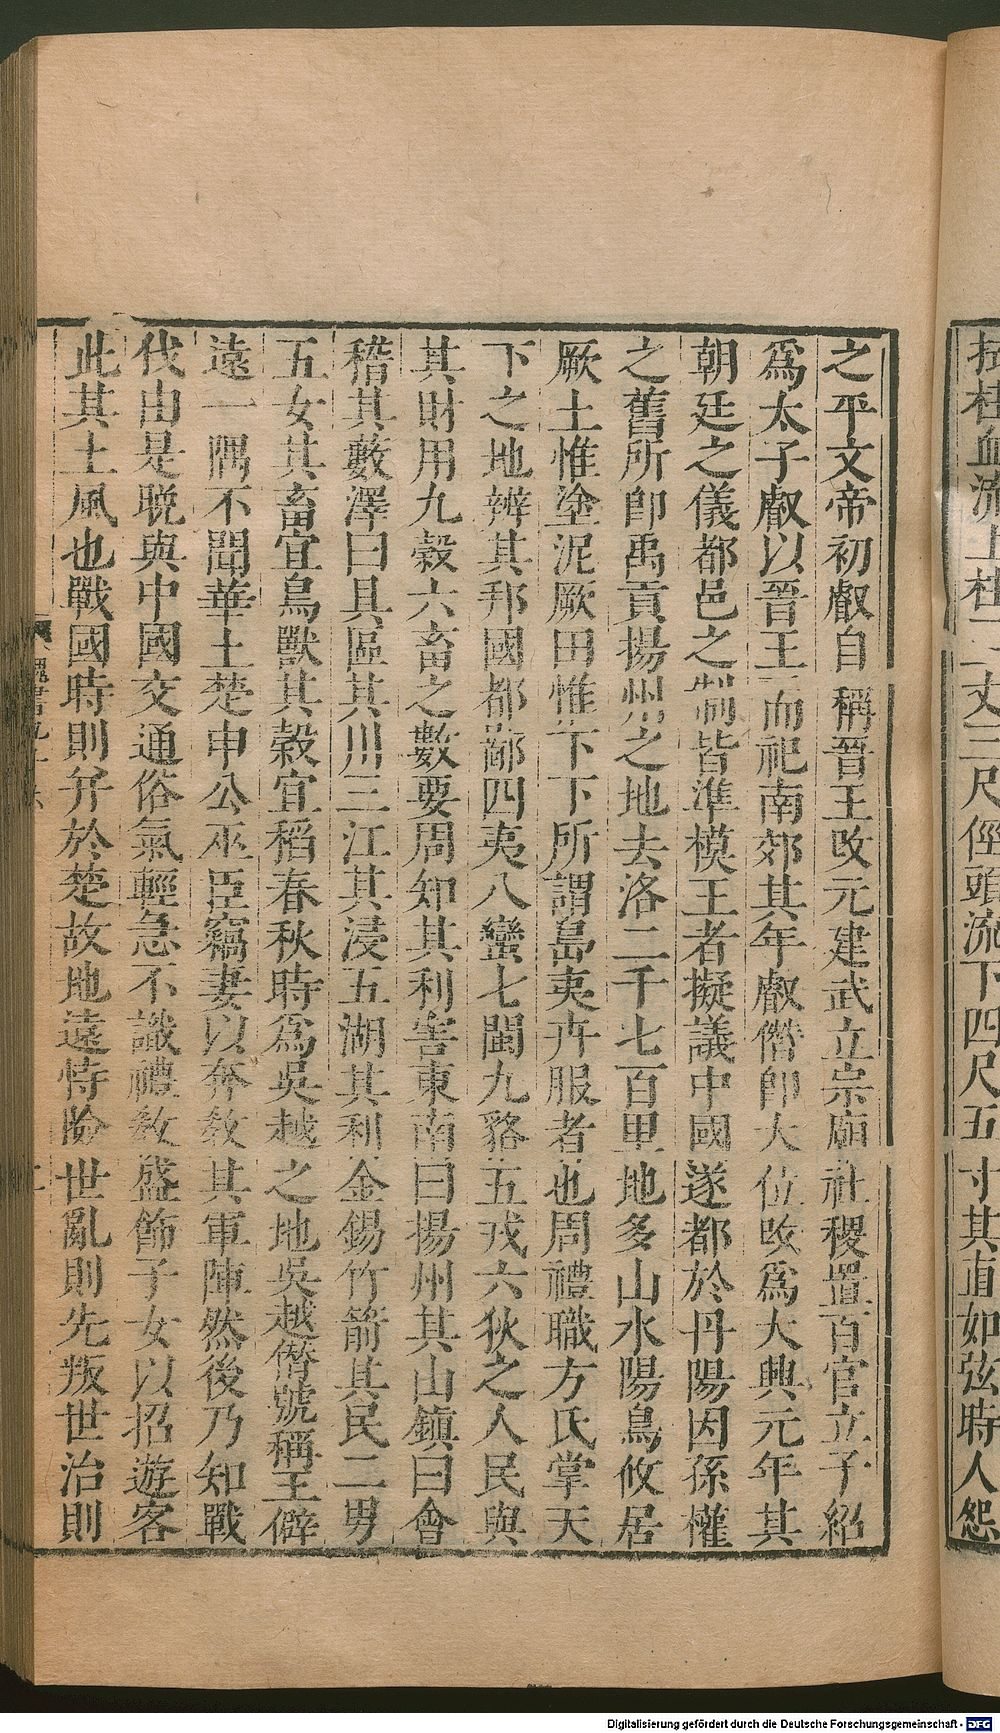 按柱血流上柱二丈三尺徑頭流下四尺五寸其直如弦時人怨
之平文帝初叡自稱晉王改元建武立宗廟社稷置百官立子紹
爲太子叡以晉王而祀南郊其年叡僭卽大位改爲大興元年其
朝廷之儀都邑之制皆準模王者擬議中國遂都於丹陽因孫權
之舊所卽禹貢揚州之地去洛二千七百里地多山水陽鳥攸居
厥土惟塗泥厥田惟下下所謂島夷卉服者也周禮職方氏掌天
下之地辨其邦國都鄙四夷八蠻七閩九貉五戎六狄之人民與
其財用九穀六畜之數要周知其利害東南曰揚州其山鎮曰會
稽其藪澤曰具區其川三江其浸五湖其利金錫竹箭其民二男
五女其畜宜鳥獸其穀宜稻春秋時爲吳越之地吳越僭號稱王僻
遠一隅不聞華土楚申公巫臣竊妻以奔教其軍陣然後乃知戰
伐由是晚與中國交通俗氣輕急不識禮教盛飾子女以招遊客
此其土風也戰國時則并於楚故地遠恃險世亂則先叛世治則
魏書九十六
Digitalisierung gefördert durch die Deutsche Forschungsgemeinschaft - DFG